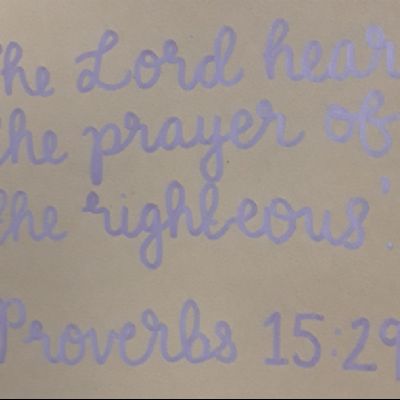 The Lord hear
the prayer of
the righteous'.
Proverbs 15:29